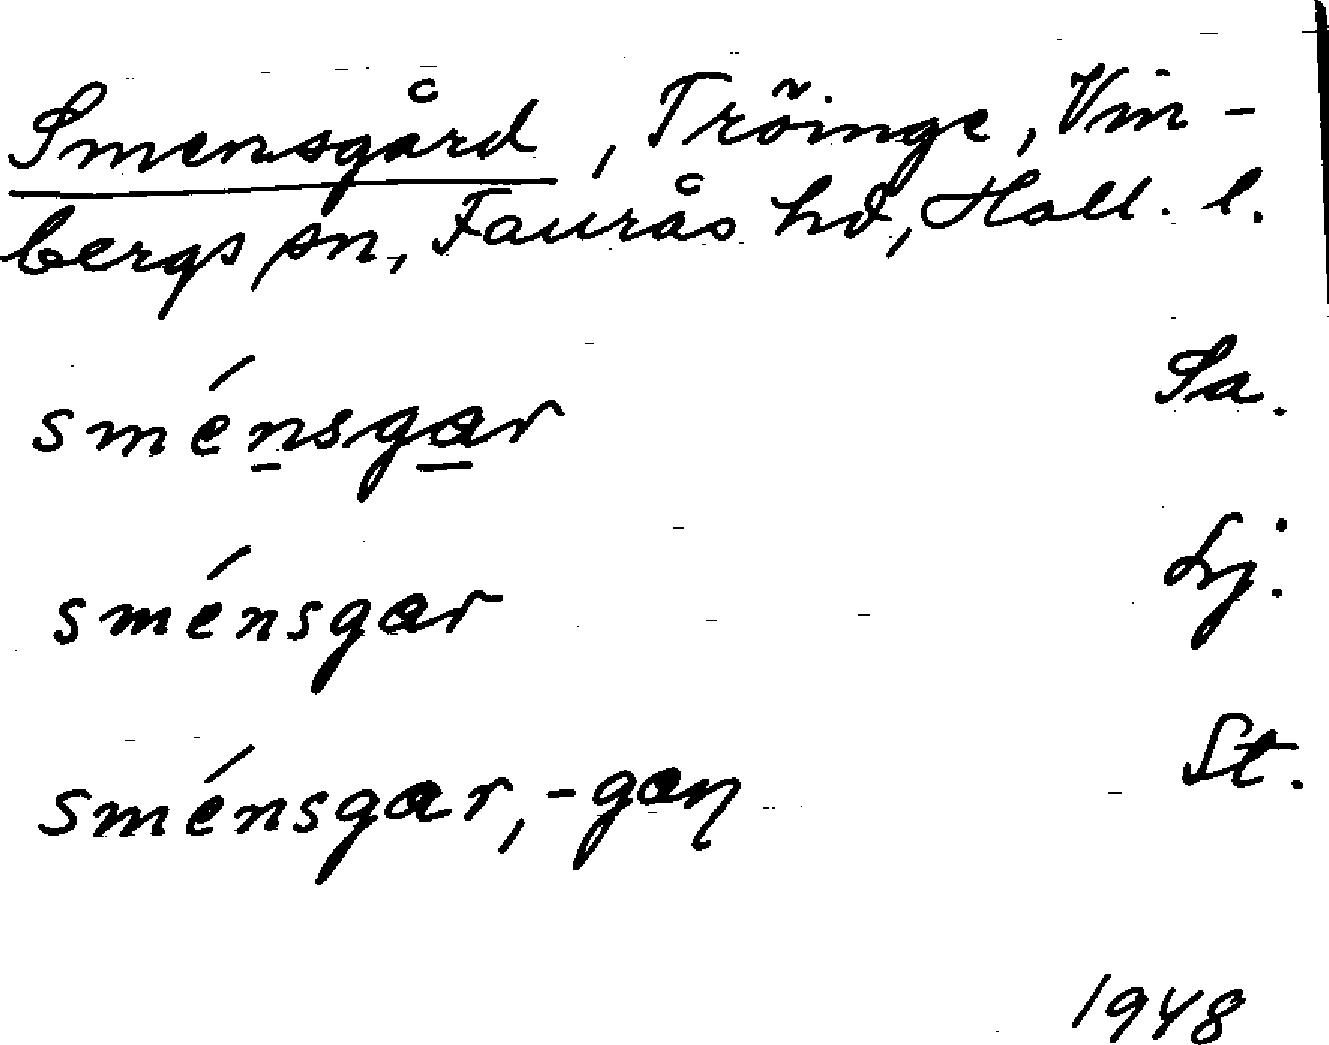 Smensgård, Tröinge, Vin-
bergs sn, Faurås hd, Hall. l.
sménsgar Sa.
sménsgar Lj.
sménsgar, -gaɳ St.
1948